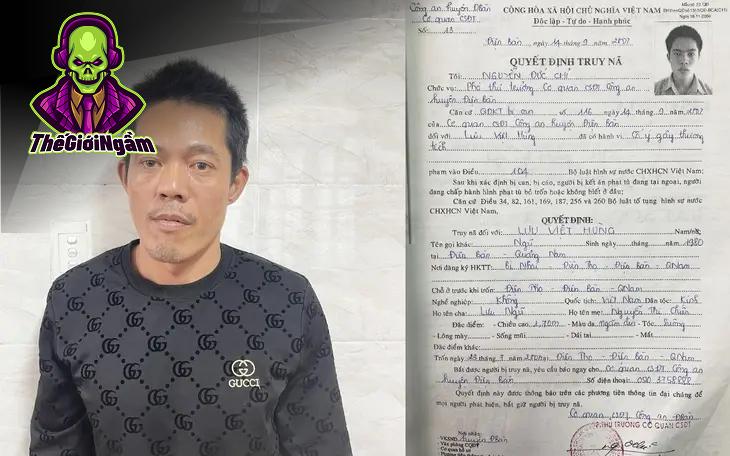 ThếGiớiNgầm
GUCCI
Công an huyện Đ.Bàn
Cơ quan CSĐT
Số: 13
CỘNG HÒA XÃ HỘI CHỦ NGHĨA VIỆT NAM
Độc lập - Tự do - Hạnh phúc
Điện Bàn, ngày 14 tháng 9 năm 2007
QUYẾT ĐỊNH TRUY NÃ
Tôi: NGUYỄN ĐỨC CHỈ
Chức vụ: Phó thủ trưởng Cơ quan CSĐT Công an
huyện Điện Bàn
Căn cứ QĐKT bị can số 116 ngày 14 tháng 9 năm 2007
của Cơ quan CSĐT Công an huyện Điện Bàn
đối với Lưu Việt Hùng đã có hành vi Cố ý gây thương
tích
phạm vào Điều 104 Bộ luật hình sự nước CHXHCN Việt Nam;
Sau khi xác định bị can, bị cáo, người bị kết án phạt tù đang tại ngoại, người
đang chấp hành hình phạt tù bỏ trốn hoặc không biết ở đâu;
Căn cứ Điều 34, 82, 161, 169, 187, 256 và 260 Bộ luật tố tụng hình sự nước
CHXHCN Việt Nam,
QUYẾT ĐỊNH:
Truy nã đối với: LƯU VIỆT HÙNG Nam/nữ:
Tên gọi khác: Ngữ Sinh ngày tháng năm 1980
tại Điện Bàn - Quảng Nam
Nơi đăng ký HKTT: Điện Thọ - Điện Bàn - QNam
Chỗ ở trước khi trốn: Điện Thọ - Điện Bàn - QNam
Nghề nghiệp: Không Quốc tịch: Việt Nam Dân tộc: Kinh
Họ tên cha: Lưu Ngữ Họ tên mẹ: Nguyễn Thị
Đặc điểm: - Chiều cao: 1,70m - Màu da: ngăm đen - Tóc:
- Lông mày - Sống mũi - Dái tai - Mắt
Đặc điểm khác:
Trốn ngày tháng năm tại Điện Thọ - Điện Bàn - QNam
Bắt được người bị truy nã, yêu cầu báo ngay cho: Cơ quan CSĐT Công an
huyện Điện Bàn Số điện thoại:
Quyết định này được thông báo trên các phương tiện thông tin đại chúng để
mọi người phát hiện, bắt giữ người bị truy nã.
Cơ quan CSĐT Công an Đ.Bàn
P.THỦ TRƯỞNG CƠ QUAN CSĐT
Nơi nhận: